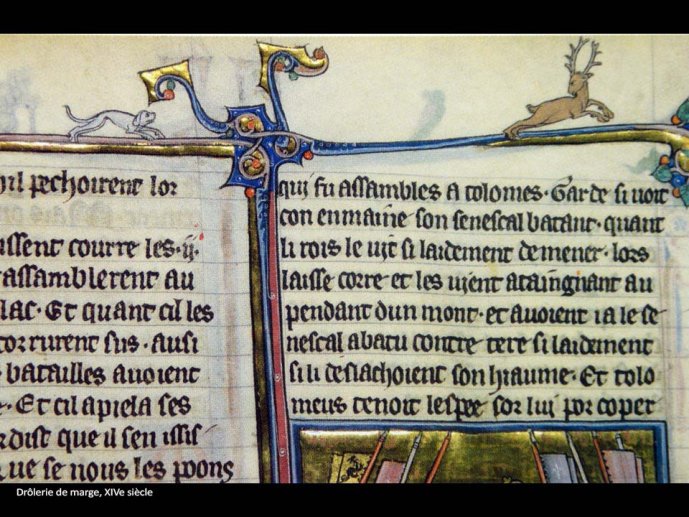 nil pechoirent lor
issent courre les·ij·
assamblerent au
lac· Et quant cil les
corrurent sus· ausi
batailles auoient
e· Et cil apiela ses
rdist que il sen issis
que se nous les poons
qui fu assambles a tolomes· Garde si uoit
con enmaine son senescal batant· quant
li rois le uit si laidement demener· lors
laisse corre et les uient ataingnant au
pendant dun mont· et auoient ia le se
nescal abatu contre tere si laidement
si li deslachoient son hiaume· Et tolo
meus tenoit lespee sor lui por coper
Drôlerie de marge, XIVe siècle